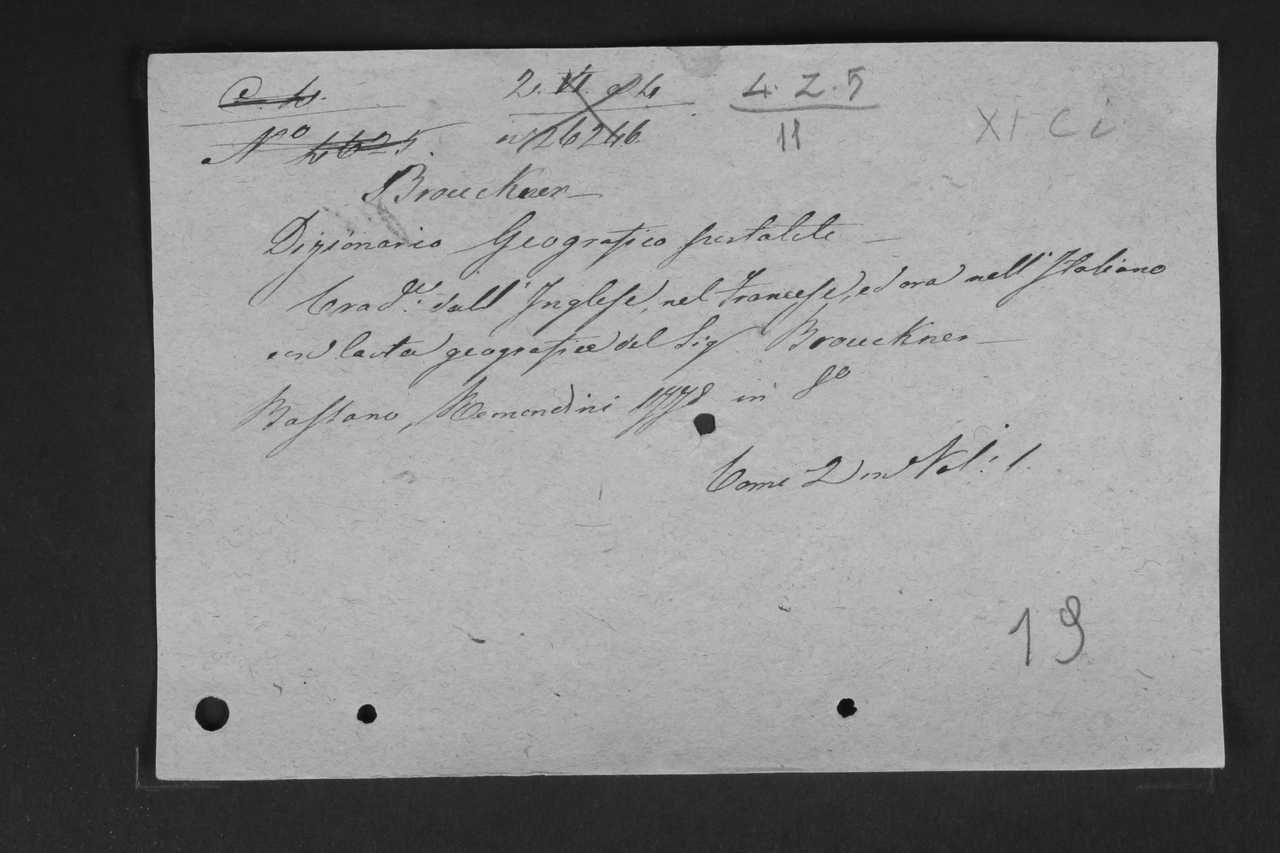 C. 4.
2. VI. 84
4. Z. 5
11
XI C i
No 4625.
n. 26246.
Brouckner
Dizionario Geografico portatile
Trad.to dall' Inglese, nel Francese, ed ora nell' Italiano
geografica del Sig Brouckner
Bassano, Remondini 1778 in 8o
Tome 2 in Vol.i 1.
19